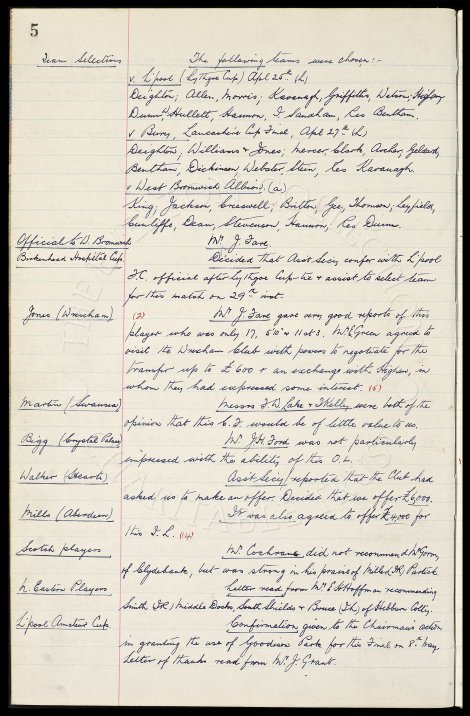 5
Team Selections The following teams were chosen:-
v. L'pool (Lythgoe Cup) Apl 25th (h)
Deighton; Allen, Morris; Kavanagh, Griffiths, Watson; Higham,
Dunn, Hullett, Hannon, J. Sandham, Res Bentham.
v Bury, Lancashire Cup Final, Apl 27th (h)
Deighton; Williams & Jones; Mercer, Clark, Archer; Geldard,
Bentham, Dickinson, Webster, Stein, Res Kavanagh.
v West Bromwich Albion. (a)
King; Jackson, Cresswell; Britton, Gee, Thomson; Leyfield,
Cunliffe, Dean, Stevenson, Hannon, Res Dunn.
Official to W Bromwich Mr. J. Fare
Birkenhead Hospital Cup Decided that Asst Secy confer with L'pool
F.C. official after Lythgoe Cup-tie & assist to select team
for this match on 29th inst.
Jones (Wrexham) (2) Mr. J. Fare gave very good reports of this
player who was only 17, 5'10" & 11st 3. Mr. E. Green agreed to
visit the Wrexham Club with powers to negotiate for the
transfer up to £600 & an exchange with in
whom they had expressed some interest. (5)
Martin (Swansea) Messrs F.W Lake & T Kelly were both of the
opinion that this C.F. would be of little value to us.
Bigg (Crystal Palace) Mr. J.H. Ford was not particularly
impressed with the ability of this O.L.
Walker (Hearts) Asst Secy reported that the Club had
asked us to make an offer. Decided that we offer £6,000.
Mills (Aberdeen) It was also agreed to offer £4,000 for
this I.L. (4)
Scotch players Mr. Cochrane did not recommend
of Clydebank, but was strong in his praise of Miller (IR) Partick
N. Eastern Players Letter read from Mr. S.W Hoffman recommending
Smith (IR) Middle Docks, South Shields & Bruce (IL) of Hebburn Colly.
L'pool Amateur Cup. Confirmation given to the Chairman's action
in granting the use of Goodison Park for this Final on 8th May.
Letter of thanks read from Mr. J. Grant.